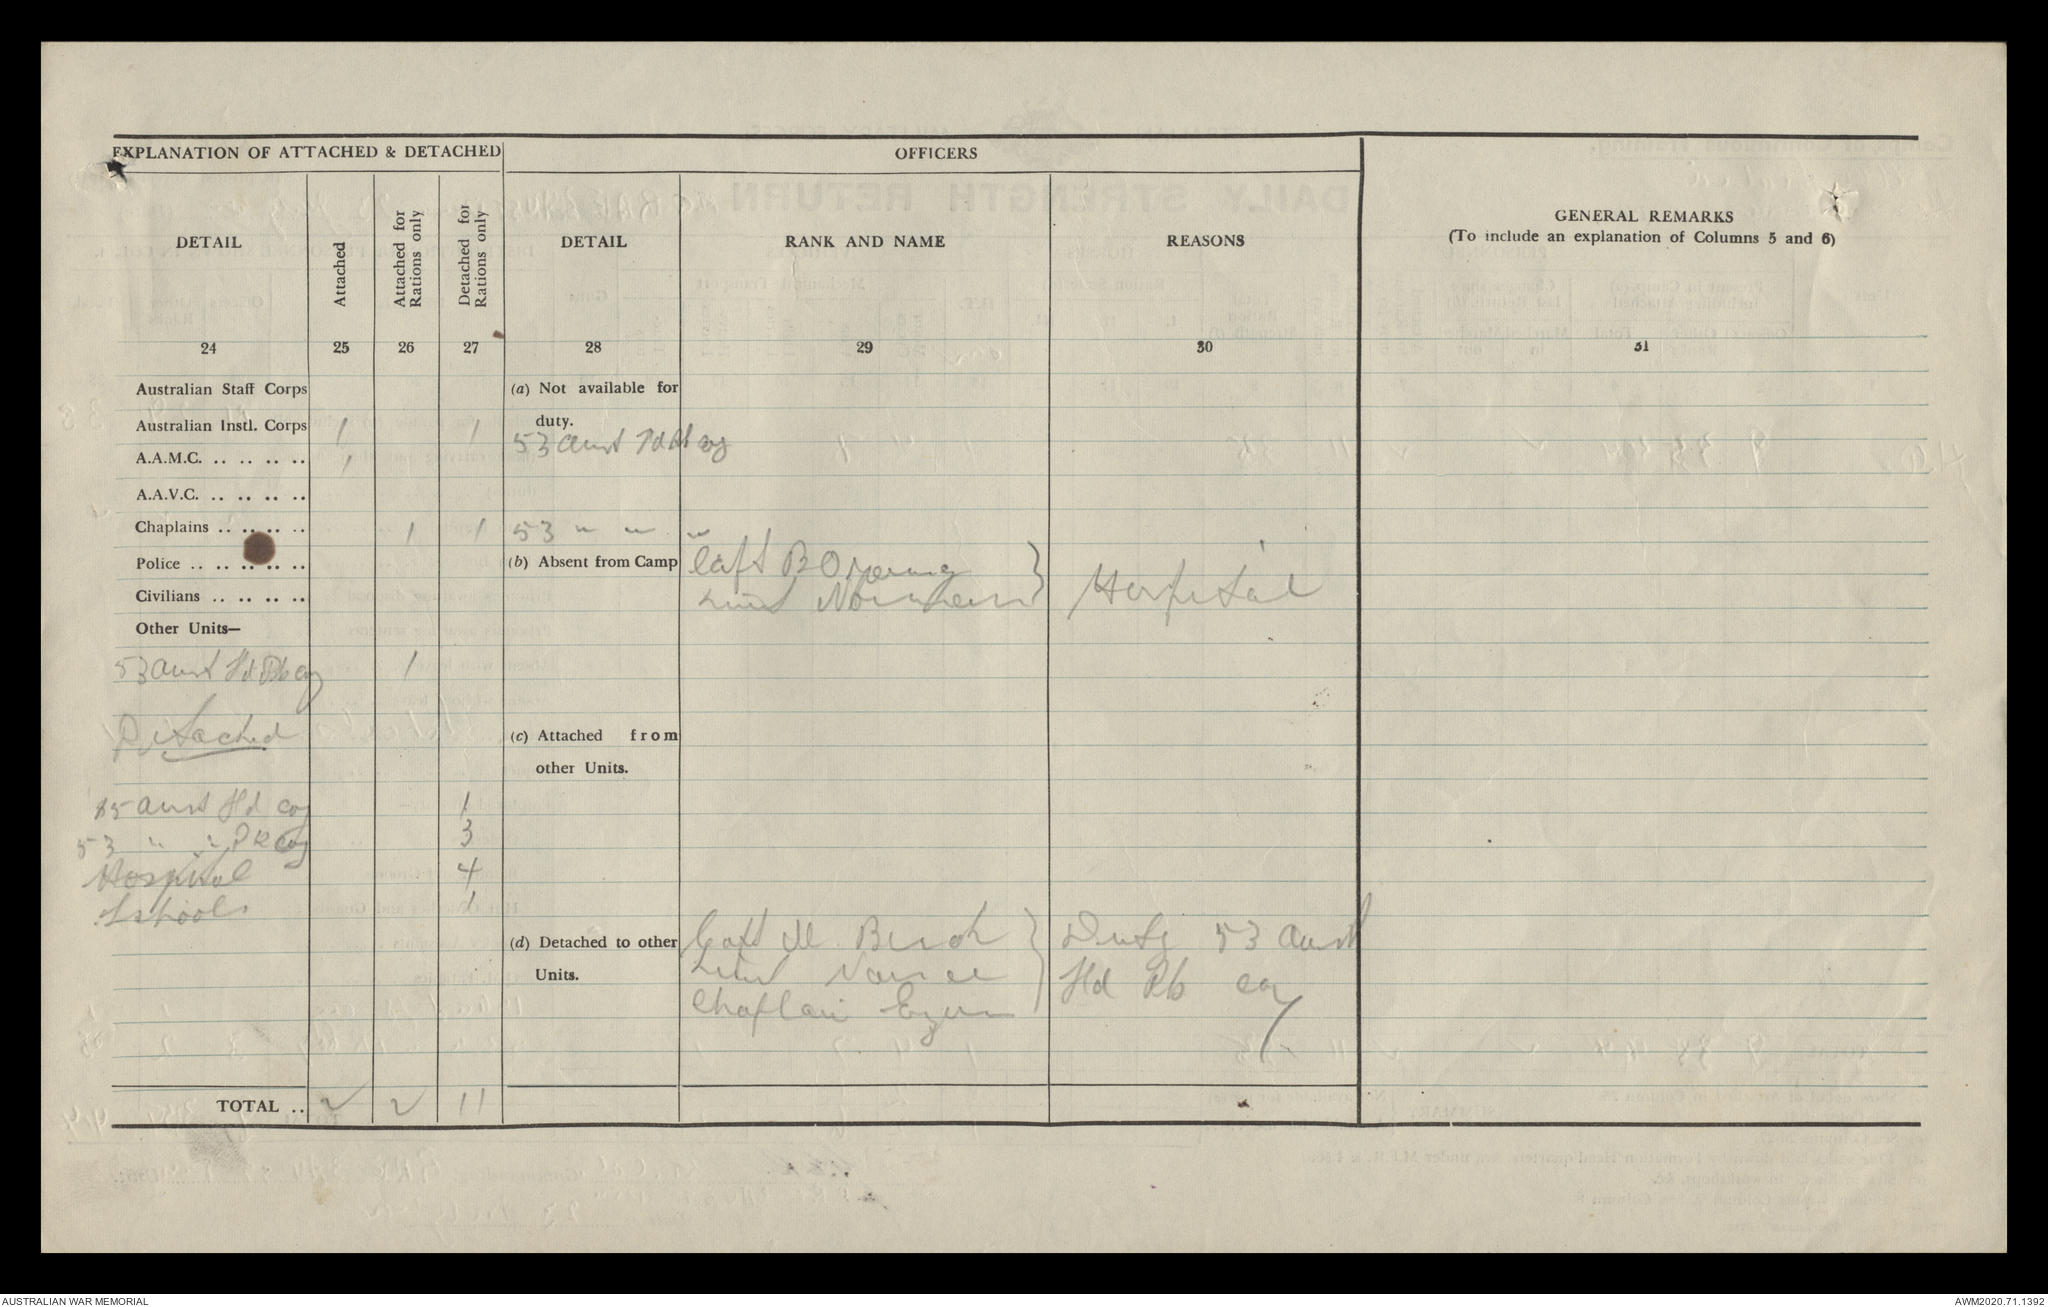 EXPLANATION OF ATTACHED & DETACHED
OFFICERS
GENERAL REMARKS
(To include an explanation of Columns 5 and 6)
DETAIL
Attached
Attached for Rations only
Detached for Rations only
DETAIL
RANK AND NAME
REASONS
24 25 26 27 28 29 30 31
Australian Staff Corps
(a) Not available for duty.
Australian Instl. Corps 1 1 53 Aust Fd Pk coy
A.A.M.C. .. .. .. .. 1
A.A.V.C. .. .. .. ..
Chaplains .. .. .. .. 1 1 53 " " "
Police .. .. .. .. ..
(b) Absent from Camp Capt B
Lieut
Hospital
Civilians .. .. .. ..
Other Units—
53 Aust Fd Pk coy 1
Detached
(c) Attached from other Units.
Aust Fd coy 1
53 " " PK coy 3
Hospital 4
Schools 1
(d) Detached to other Units.
Capt M. Birch
Lieut
Chaplain
Duty 53 Aust
Fd Pk coy
TOTAL .. 2 2 11
AUSTRALIAN WAR MEMORIAL
AWM2020.71.1392